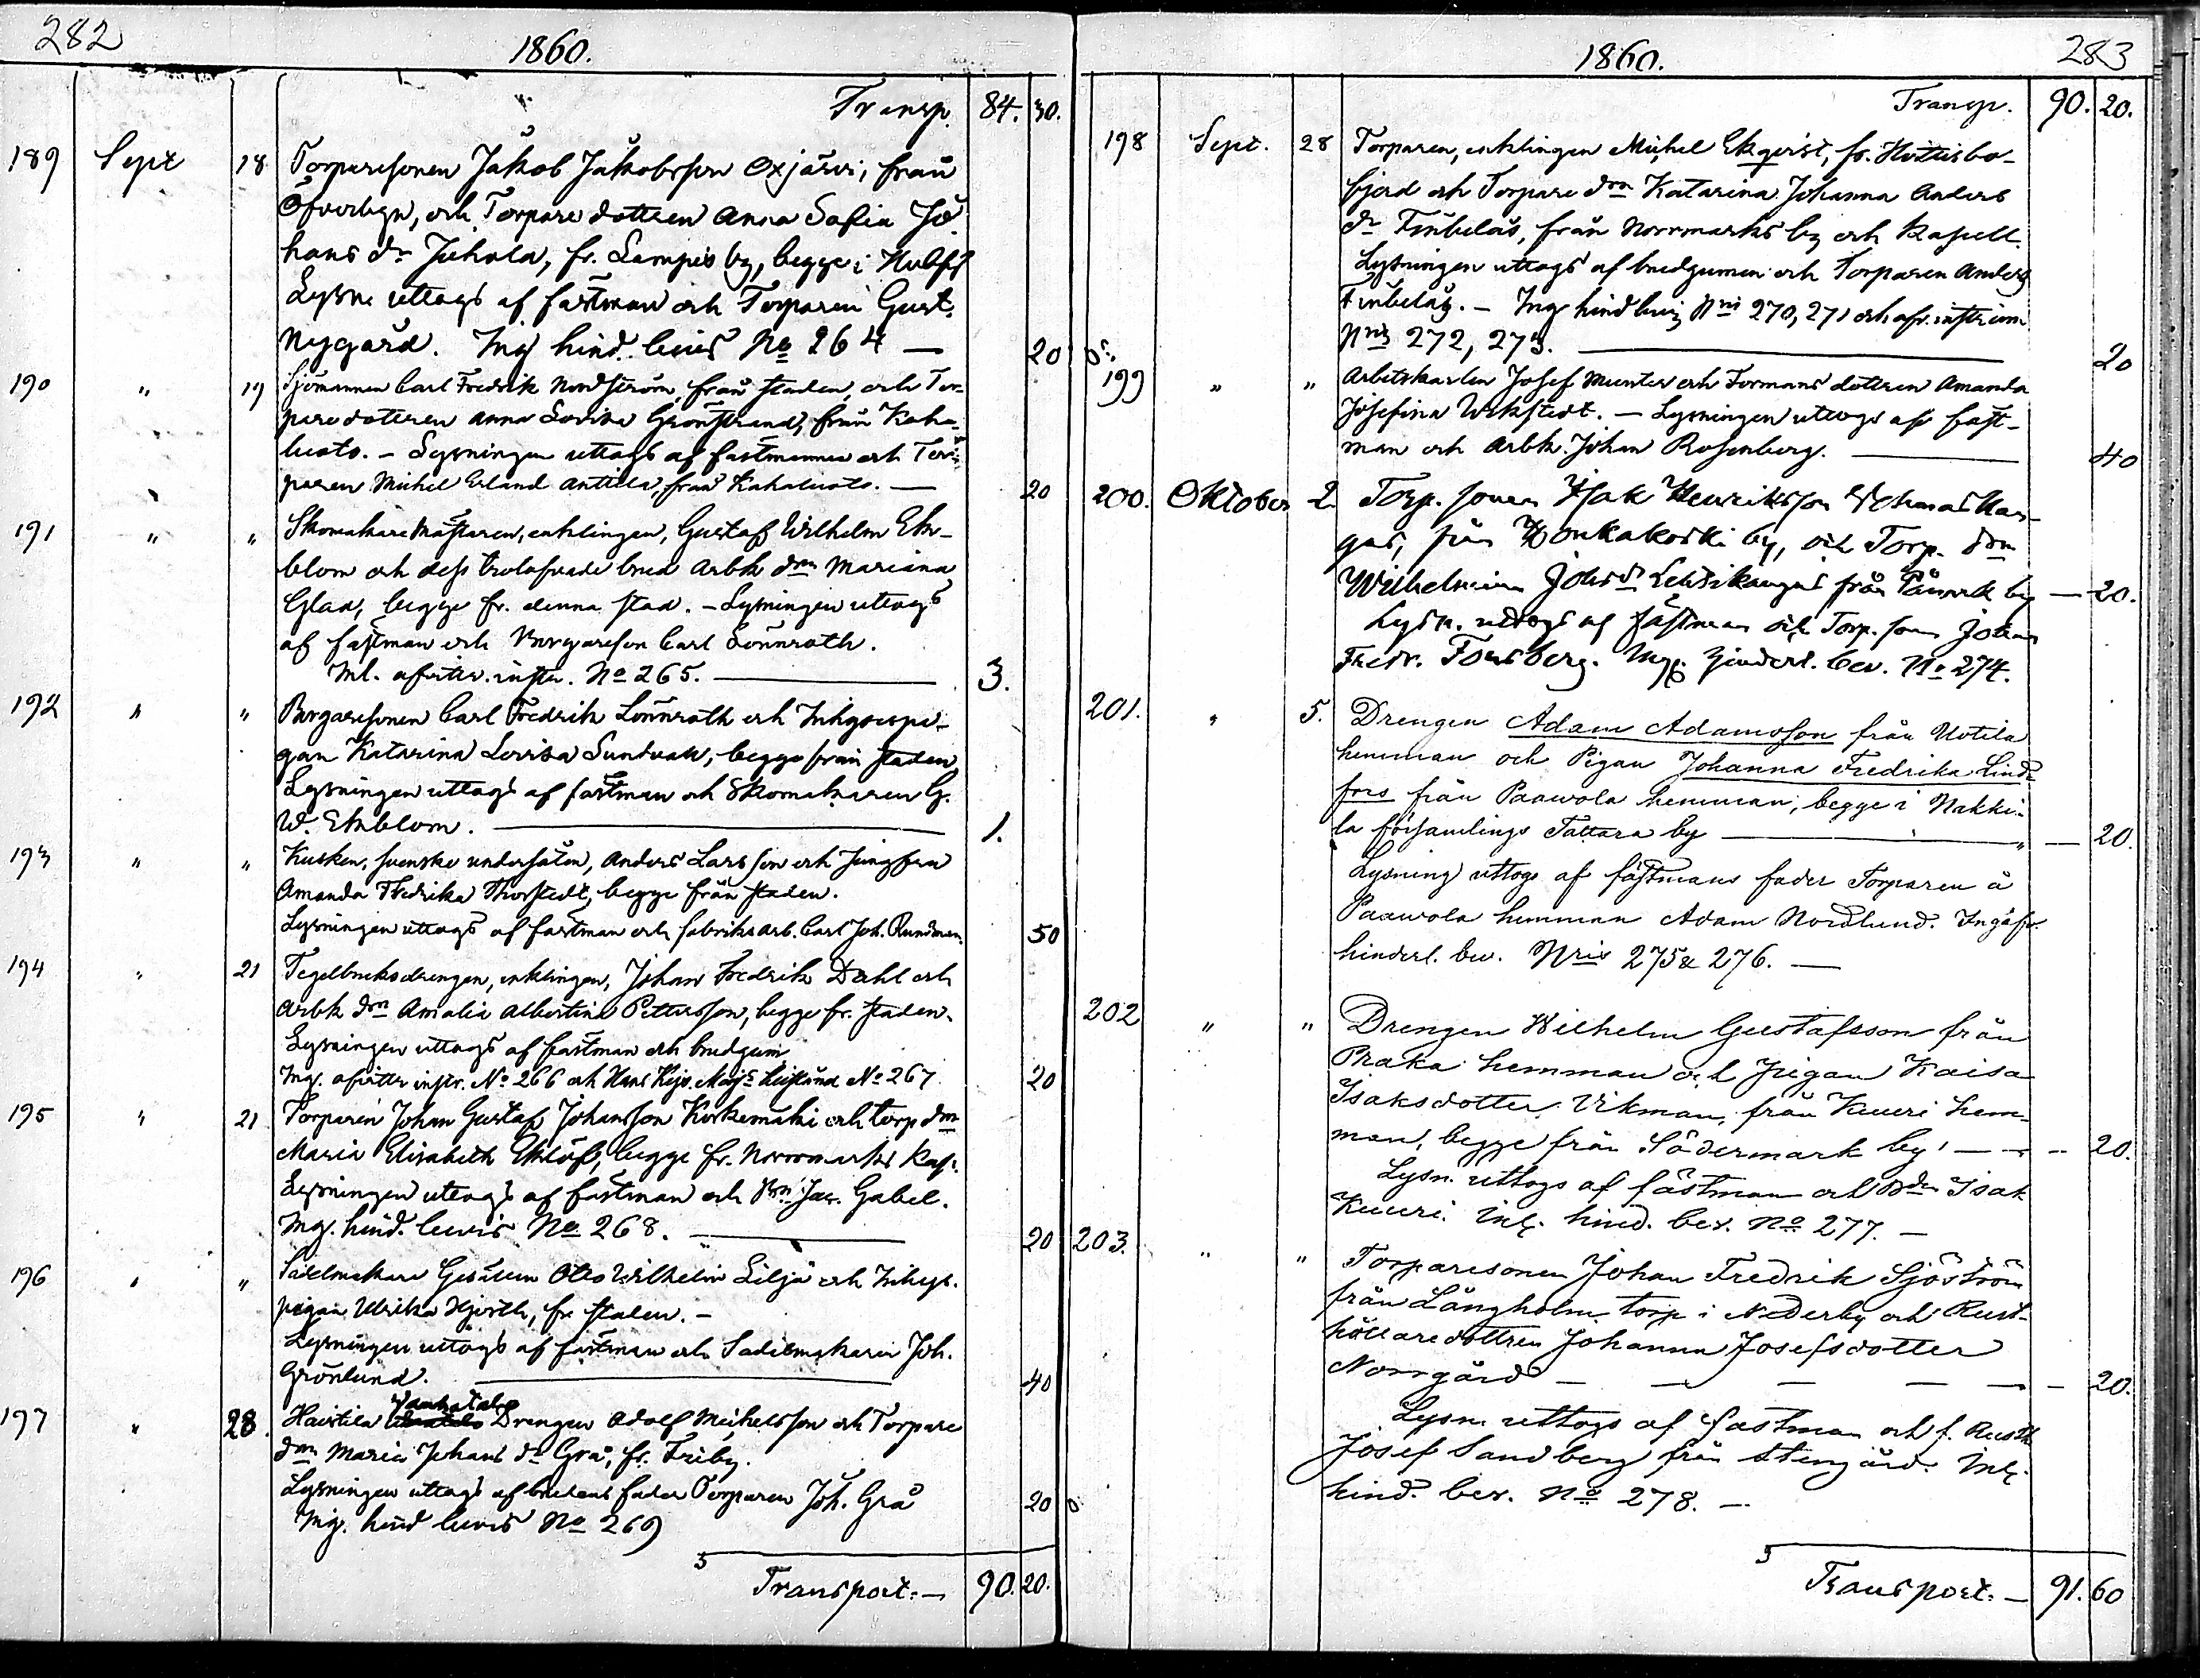 282
1860.
Transp. 84. 30.
189 Sept 18 Torparesonen Jakob Jakobsson Oxjärvi, från
Öfverbyn, och Torpare dottren Anna Sofia Jo-
hans dr Juhola, fr. Lampis by, begge i
Lysn. uttogs af fästman och Torparen Gust.
Nygård. Ing. hind. bevis No 264 — 20
190 " 19 Sjömannen Carl Fredrik Nordström, från staden, och Tor-
pare dottren Anna Lovisa Grönstrand, från Kaha-
luoto. – Lysningen uttogs af fästmannen och Tor-
paren Michel Erland Anttila, från Kahaluoto. — 20
191 " " Skomakare Mästaren, enklingen, Gustaf Wilhelm Ek-
blom och dess trolofvade brud Arbk drn Mariana
Glad, begge fr. denna stad. – Lysningen uttogs
af fästman och Borgareson Carl Lönnroth.
Inl. afvittr. instr. No 265. — 3.
192 " " Borgaresonen Carl Fredrik Lönnroth och Inhyses pi-
gan Katarina Lovisa Sundvall, begge från staden
Lysningen uttogs af fästman och Skomakaren G.
W. Ekblom. — 1.
193 " " Kusken, svenske undersåten, Anders Larsson och Jungfru
Amanda Fredrika Thorstedt, begge från staden.
Lysningen uttogs af fästman och fabriksarb. Carl Joh. Rundman. 50
194 " 21 Tegelbruksdrengen, enklingen, Johan Fredrik Dahl och
Arbk drn Amalia Albertina Pettersson, begge fr. staden.
Lysningen uttogs af fästman och brudgum
Ing. afvittr instr. No 266 och Hans Kejs. Majts No 267 20
195 " 21 Torparen Johan Gustaf Johansson Korkemäki och torp drn
Maria Elisabeth Eklöf, begge fr. Norrmarks Kap.
Lysningen uttogs af fästman och Jac. Gabel.
Ing. hind. bevis No 268. — 20
196 " " Sadelmakare Gesällen Otto Wilhelm Lilja och Inhys.
pigan Ulrika Hjorth, fr. staden. –
Lysningen uttogs af fästman och Sadelmakaren Joh.
Grönlund. — 40
Vanhatalo
197 " 28. Haistila Drengen Adolf Michelsson och Torpare
drn Maria Johans dr Grå, fr. Friby.
Lysningen uttogs af brudens fader Torparen Joh. Grå 20
Ing. hind bevis No 269
Transport. — 90. 20.
283
1860.
Transp. 90. 20.
198 Sept. 28 Torparen, enklingen Michel Ekqvist, fr. Hvittisbo-
fjerd och Torpare drn Katarina Johanna Anders
dr Finbelås, från Norrmarks by och Kapell.
Lysningen uttogs af brudgumen och Torparen Anders
Finbelås. – Ing hind bevis Nris 270, 271 och afv. instrum
Nris 272, 273. — 20
199 " " Arbetskarlen Josef Munter och Formans dottren Amanda
Josefina Wikstedt. — Lysningen uttogs af fäst-
man och Arbk. Johan Rosenberg. — 40
200. Oktober 2. Torp. sonen Isak Henriksson Kan-
gas, från Honkakoski by, och Torp. drn
Wilhelmina Johsdr Lehtikangas från Påmark by — 20.
Lysn. uttogs af fästman och Torp. son Johan
Fredr. Forsberg. Ing. hinderl. bev. No 274.
201. " 5. Drengen Adam Adamsson från Uotila
hemman och Pigan Johanna Fredrika Lind-
fors från Paawola hemman, begge i Nakki-
la församlings Tattara by — 20.
Lysning uttogs af fästmans fader Torparen å
Paawola hemman Adam Nordlund. Ingåfv.
hinderl. bev. Nris 275 & 276. —
202 " " Drengen Wilhelm Gustafsson från
Praka hemman och Pigan Kaisa
Isaksdotter Vikman, från Kuuri hem-
man, begge från Södermark by, — 20.
Lysn. uttogs af fästman och Bdn Isak
Kuuri. Inl. hind. bev. No 277. —
203. " " Torparesonen Johan Fredrik Sjöström
från Långholm torp i Nederby och Rust-
hållaredottren Johanna Josefsdotter
Norrgård — — — — — 20.
Lysn. uttogs af fästman och f. Rusth.
Josef Sandberg från Stengård. Inl.
hind. bev. No 278. —
Transport. — 91. 60